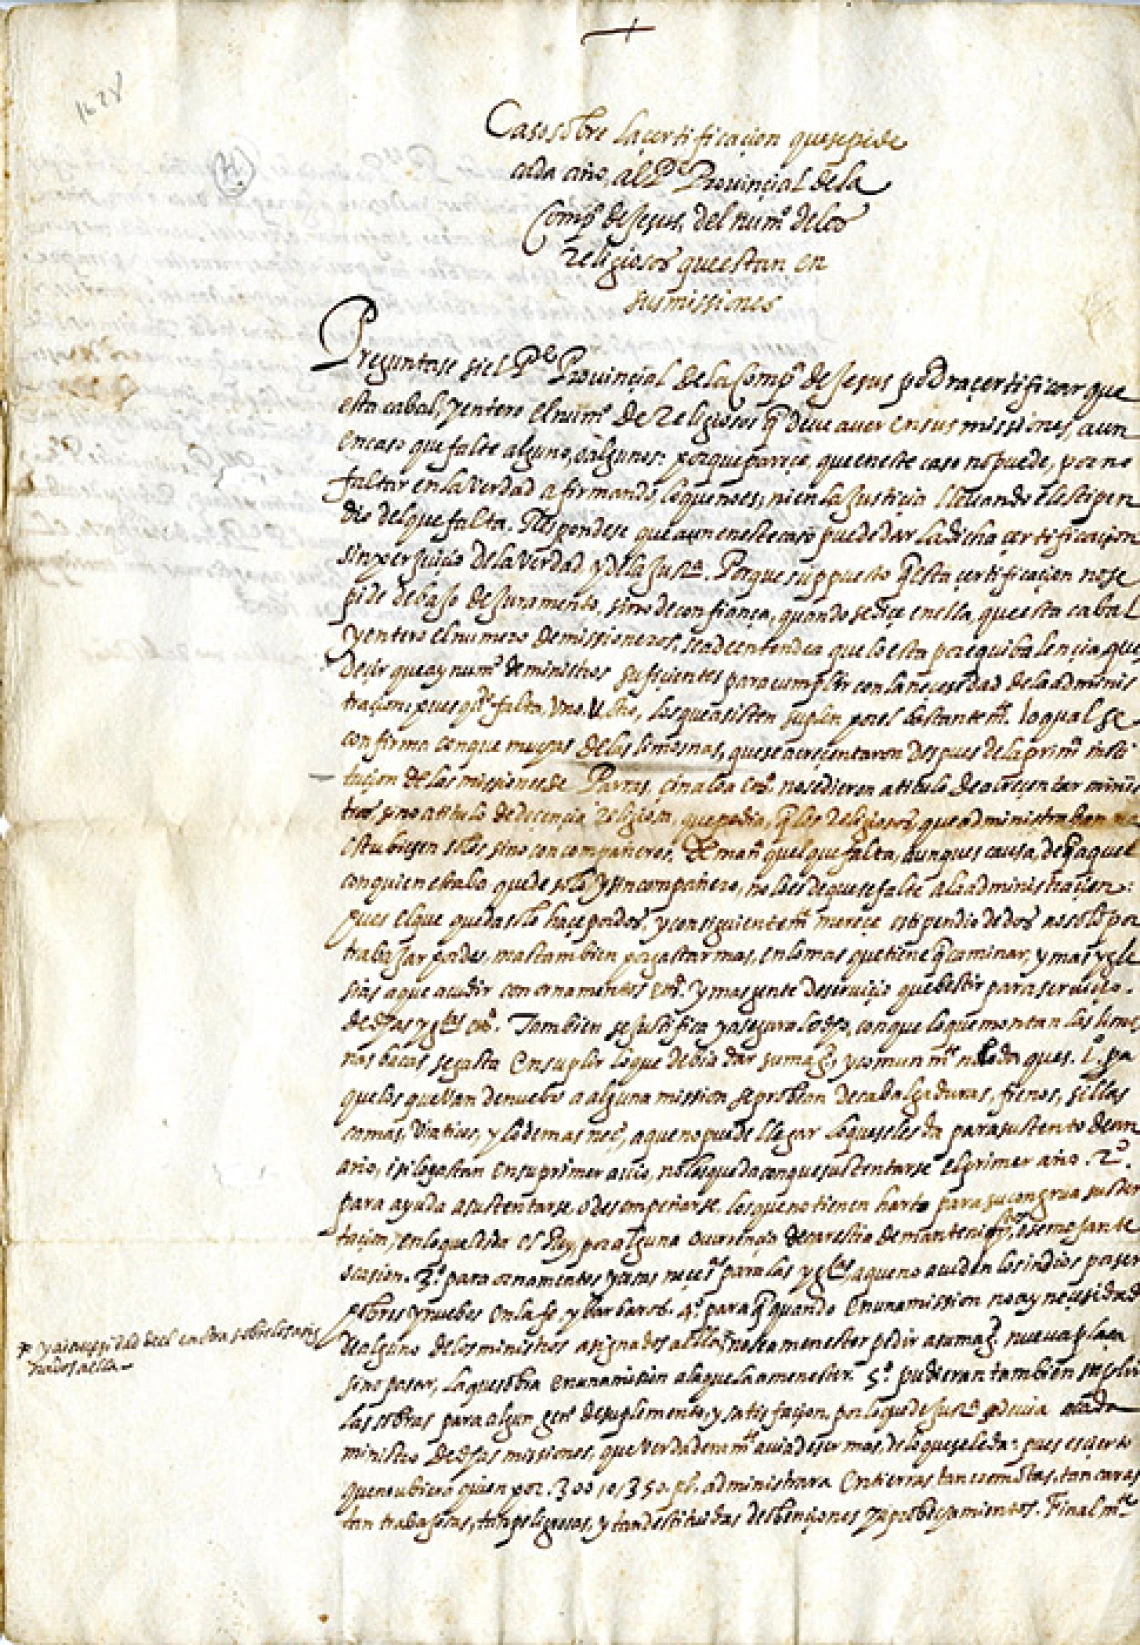 1628
Caso sobre la çertificaçion que se pide
cada año, al Pe Provinçial de la
Compª de Jesus, del numº de los
religiosos que estan en
sus missiones
Preguntase si el Pe Provinçial de la Compª de Jesus podra çertificar que
esta cabal, y entero el numº de religiosos q deve aver en sus missiones, aun
en caso que falte alguno, o algunos: porque pareçe, que en este caso no puede, por no
faltar en la verdad afirmando lo que no es, ni en la Justicia llevando el estipen
dio del que falta. Respondese que aun en este caso puede dar la dicha çertificaçion
sin perjuiçio de la verdad y de la Jusª. Porque suppuesto q esta çertificaçion no se
pide debaxo de Juramento, sino de confiança, quando se diçe en ella, que esta cabal
y entero el numero de missioneros, se a de entender que lo esta por equibalençia que es
deçir que ay numº de ministros sufiçientes para cumplir con la neçesidad de la adminis
traçion, pues qdo falta, uno, u otro, los que asisten suplen por el bastantemte. lo qual se
confirma con que muchas de las limosnas, que se acreçentaron despues de la primª insti
tuçion de las missiones de Parras, Çinaloa etcª. no se dieron a titulo de acreçentar minis
tros, sino a titulo de deçençia religiosa, que pedia, q los religiosos que administraban no
estubiesen solos sino con compañeros. De manª que el que falta, aunque es causa, de q aquel
con quien estaba quede solo y sin compañero, no lo es de que se falte a la administraçion:
pues el que queda solo haçe por dos, y consiguientemte. mereçe estipendio de dos no solo por
trabajar por dos, mas tambien por gastar mas, en lo mas que tiene q caminar, y mas ygle
sias a que acudir con ornamentos etcª. y mas gente de serviçio que bestir para serviçio.
de dhas yglas etcª. Tambien se justifica y asegura lo dho, con que lo que montan las limos
nas bacas, se gasta en suplir lo que debia dar su magd, y comunmte no lo da que es. 1º. pa
que los que van de nuebo a alguna mission se probean de cabalgaduras, frenos, sillas
camas, viatico, y lo demas neçº, a que no puede llegar lo que se les da para sustento de un
año, i si lo gastan en su primer avio, no les queda con que sustentarse el primer año. 2º.
para ayuda a sustentarse, o desempeñarse, los que no tienen harto para su congrua susten
taçion, en lo que se les da o por alguna ocurrençia de carestia de mantenimtos, o semejante
ocasion. 3º para ornamentos y cosas neçesª para las yglas, a que no acuden los indios por ser
pobres y nuebos en la fe, y barbaros. 4º. para q quando en una mission no ay neçesidad
de alguno de los ministros asignados a ella, no sea menester pedir a su magd. nueva plaça
sino pasar, la que sobra en una mision a la que la a menester. 5º. pudieran tambien suplir
las sobras para algun genº de suplemento, y satisfaçion, por lo que de Jusª se devia a cada
ministro de dhas missiones, que verdaderamte avia de ser mas, de lo que se le da: pues es çierto
que no ubiera quien por. 300, o, 350. ps. administrara en tierras, tan remotas, tan caras
tan trabajosas, tan peligrosas, y tan destituidas de obençiones y probechamientos. Finalmte